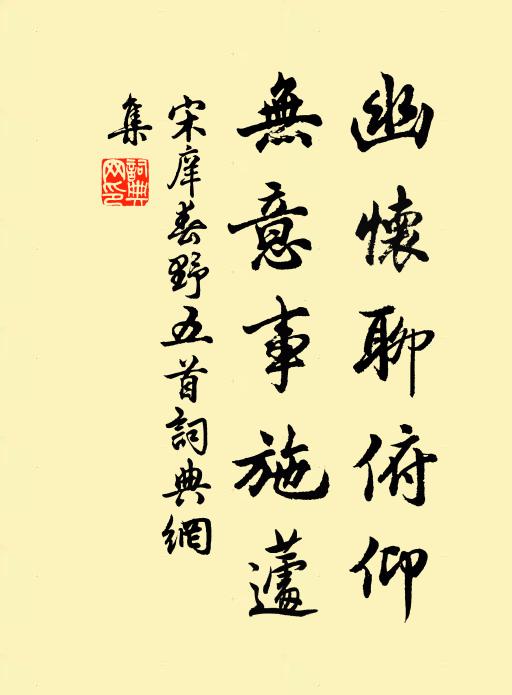 幽懷聊俯仰
無意事施蘧
宋庠春野五首詞典網
集
詞典網印